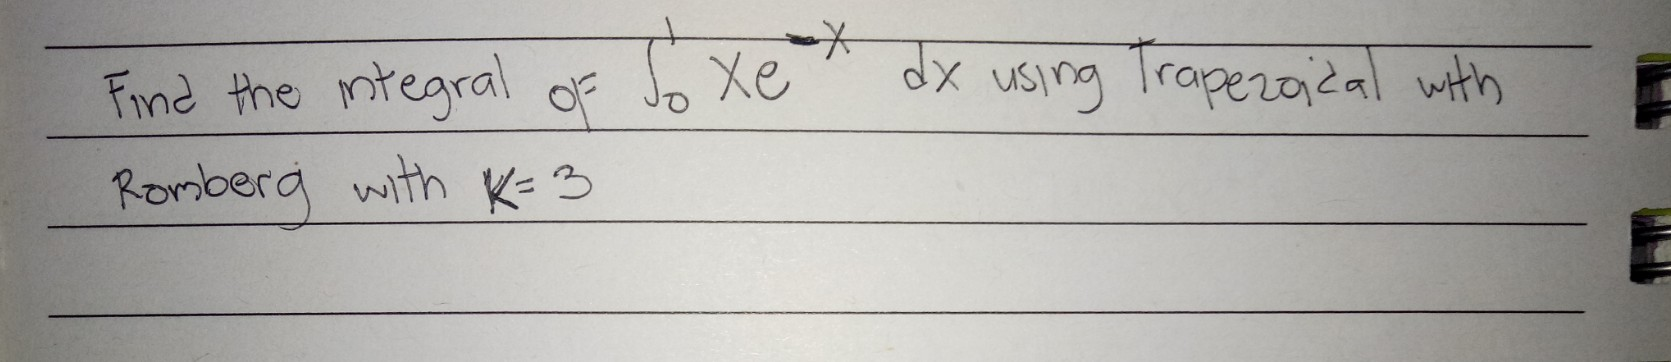 Find the integral of ∫₀¹ xe⁻ˣ dx using Trapezoidal with
Romberg with K=3